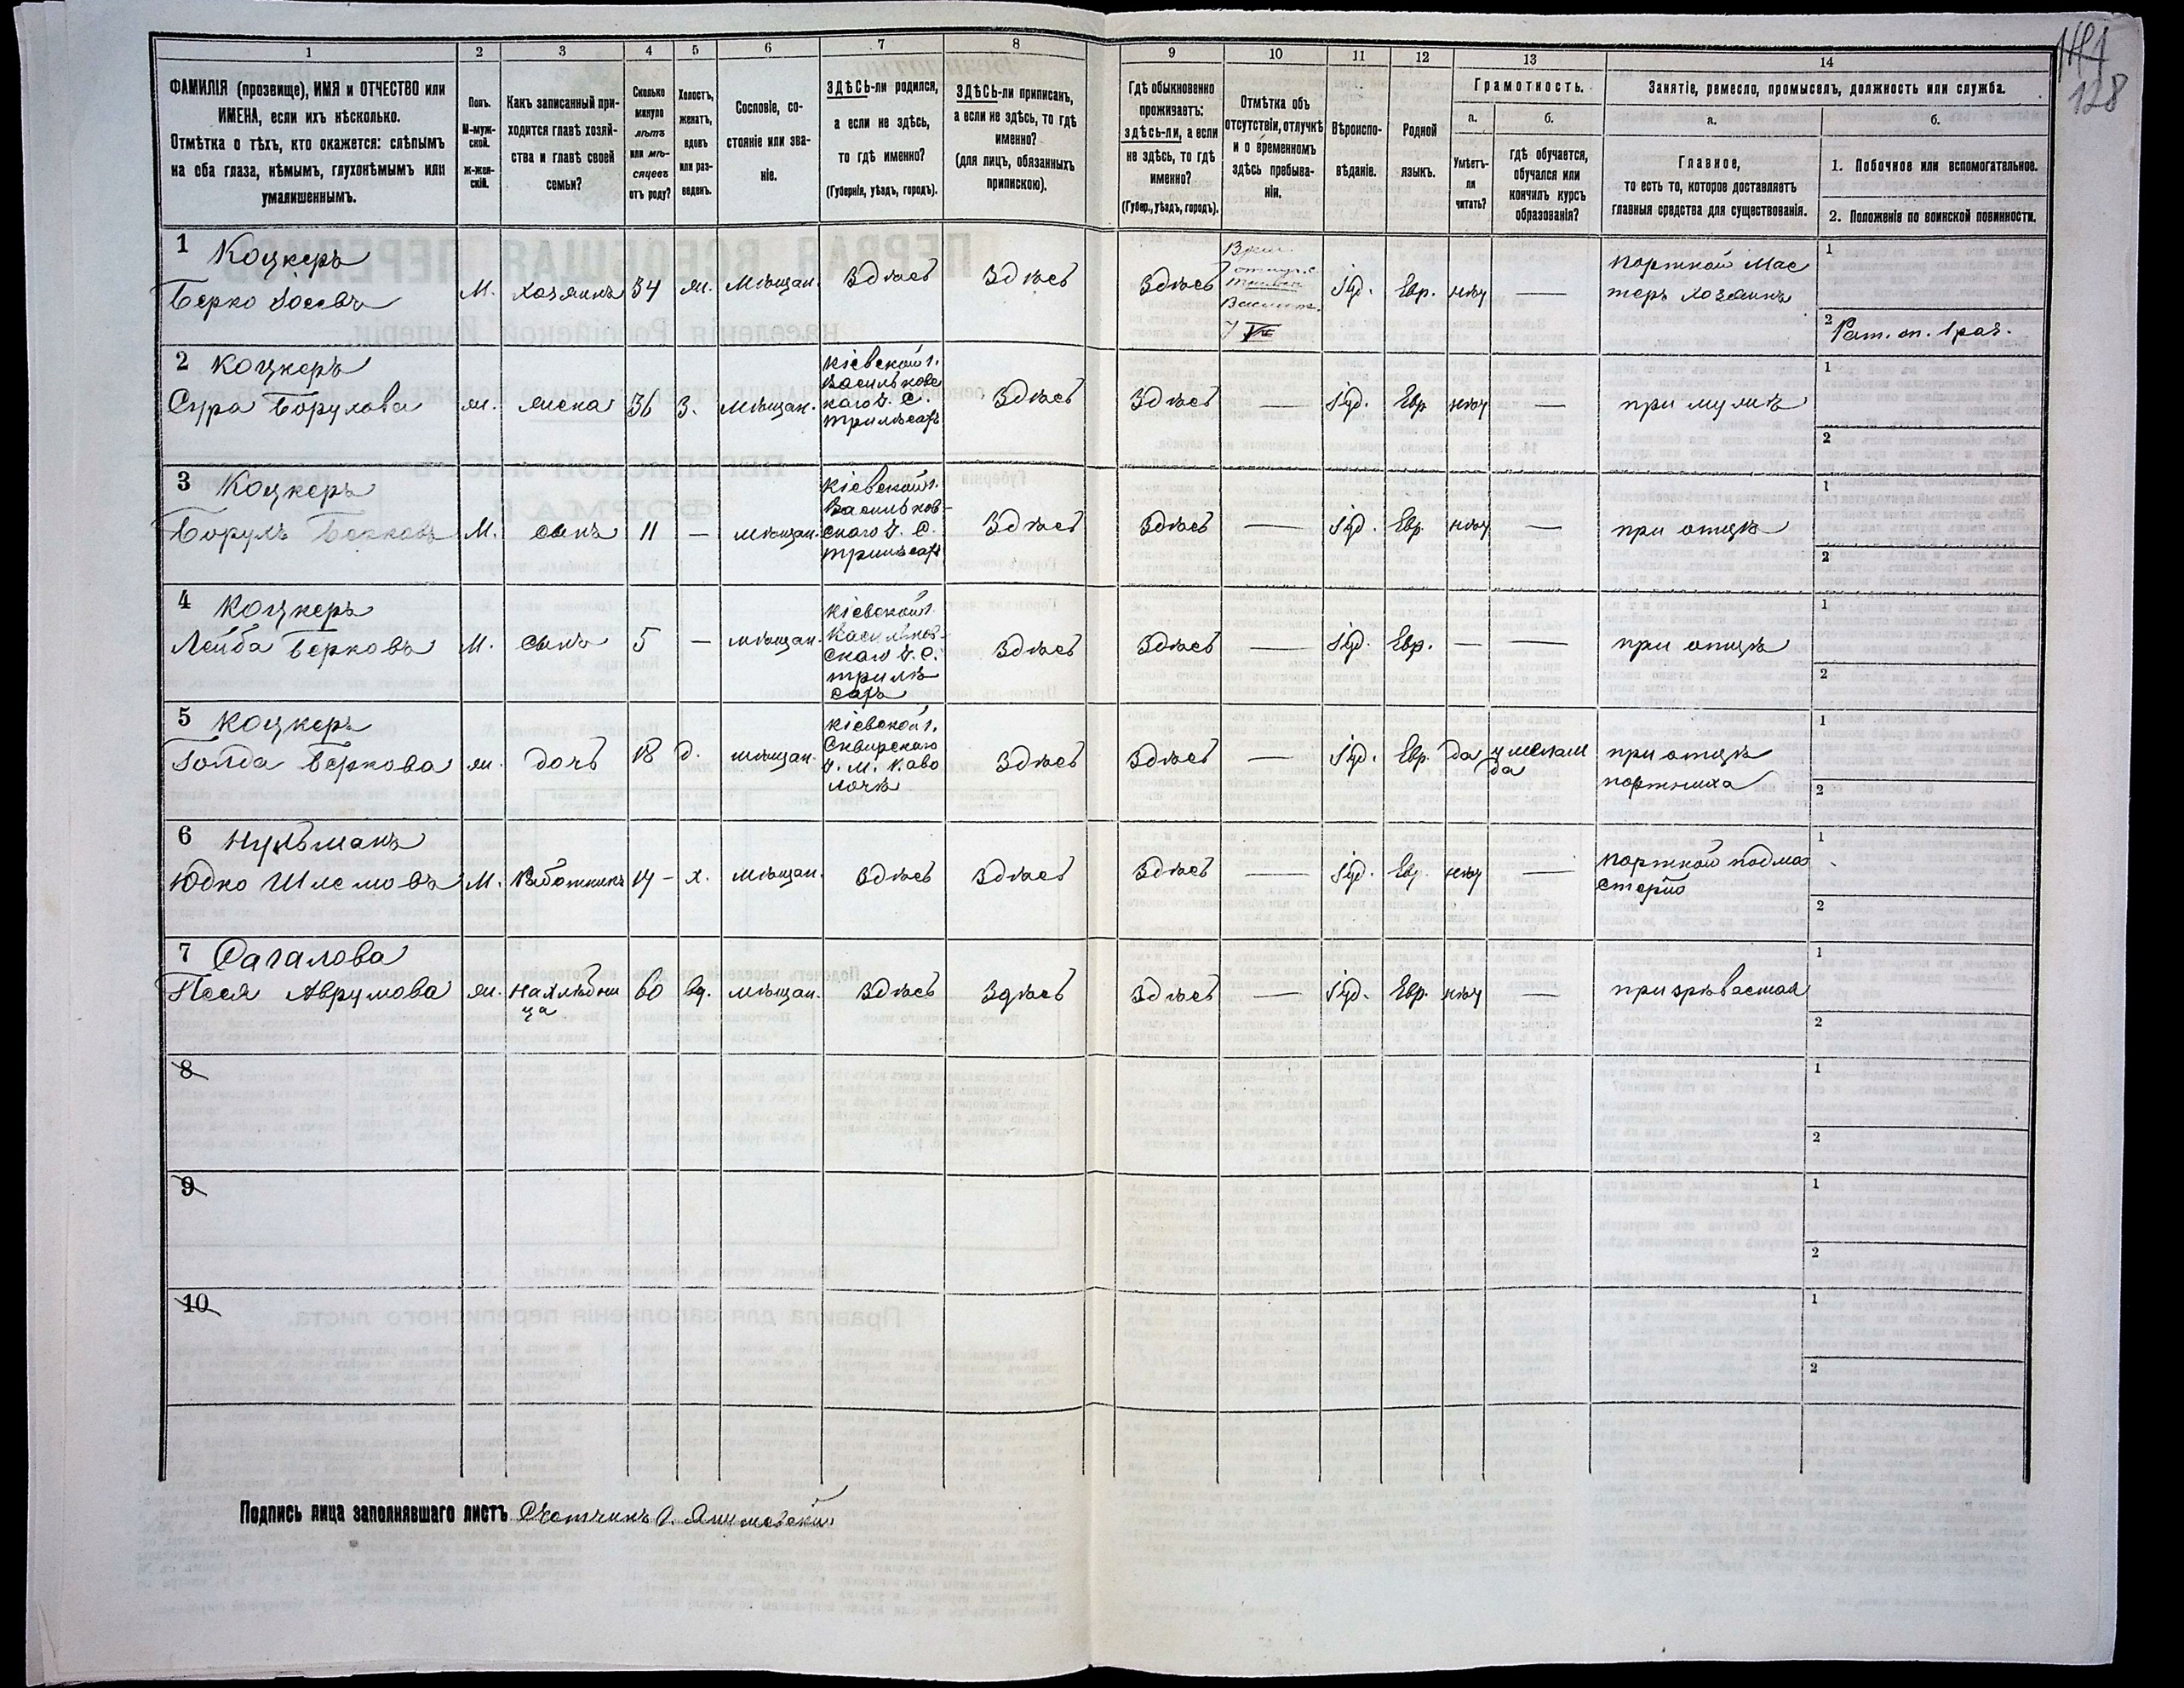 1
2
3
4
5
6
7
8
9
10
11
12
13
14
128
ФАМИЛІЯ (прозвище), ИМЯ и ОТЧЕСТВО или
ИМЕНА, если ихъ нѣсколько.
Отмѣтка о тѣхъ, кто окажется: слѣпымъ
на оба глаза, нѣмымъ, глухонѣмымъ или
умалишеннымъ.
Полъ.
М-муж-
ской.
ж-жен-
скій.
Какъ записанный при-
ходится главѣ хозяй-
ства и главѣ своей
семьи?
Сколько
минуло
лѣтъ
или мѣ-
сяцевъ
отъ роду?
Холостъ,
женатъ,
вдовъ
или раз-
веденъ.
Сословіе, со-
стояніе или зва-
ніе.
ЗДѢСЬ-ли родился,
а если не здѣсь,
то гдѣ именно?
(Губернія, уѣздъ, городъ).
ЗДѢСЬ-ли приписанъ,
а если не здѣсь, то гдѣ
именно?
(для лицъ, обязанныхъ
припискою).
Гдѣ обыкновенно
проживаетъ:
здѣсь-ли, а если
не здѣсь, то гдѣ
именно?
(Губер., уѣздъ, городъ).
Отмѣтка объ
отсутствіи, отлучкѣ
и о временномъ
здѣсь пребыва-
ніи.
Вѣроиспо-
вѣданіе.
Родной
языкъ.
Грамотность.
а.
Умѣетъ-
ли
читать?
б.
гдѣ обучается,
обучался или
кончилъ курсъ
образованія?
Занятіе, ремесло, промыселъ, должность или служба.
а.
Главное,
то есть то, которое доставляетъ
главныя средства для существованія.
б.
1. Побочное или вспомогательное.
2. Положеніе по воинской повинности.
1 Коцкеръ
Берко Іосевъ М. хозяинъ 34 ж. мѣщан. Здѣсь Здѣсь Здѣсь Іуд. Евр. нѣт — портной мас
теръ хозяинъ
1
2 Рат. оп. 1 раз.
2 Коцкеръ
Сура Борухова ж. жена 36 з. мѣщан. Кіевской г.
Васильковс
каго У. С.
Трилѣсах
Здѣсь Здѣсь — Іуд. Евр нѣт — при мужѣ
1
2
3 Коцкеръ
Борухъ Берковъ М. сынъ 11 — мѣщан. Кіевской г.
Васильков-
скаго У. С.
Трилѣсах
Здѣсь Здѣсь — Іуд. Евр. нѣт — при отцѣ
1
2
4 Коцкеръ
Лейба Берковъ М. сынъ 5 — мѣщан. Кіевской г.
Васильков-
скаго У. С.
Трилѣ
сахъ
Здѣсь Здѣсь — Іуд. Евр. — — при отцѣ
1
2
5 Коцкеръ
Голда Беркова ж. дочь 18 д. мѣщан. Кіевской г.
Сквирскаго
У. М. Паво
лочѣ
Здѣсь Здѣсь — Іуд. Евр. да
при отцѣ
портниха
1
2
6 Нухъманъ
Юдко Шлемовъ М. Работникъ х. мѣщан. Здѣсь Здѣсь Здѣсь — Іуд. Евр. нѣт — портной подма
стерію
1
2
7 Сагалова
Песя Аврумова ж. нахлѣбни
ца
60 вд. мѣщан. Здѣсь Здѣсь Здѣсь — Іуд. Евр. нѣт — призрѣваемая
1
2
8
1
2
9
1
2
10
1
2
Подпись лица заполнявшаго листъ Счетчикъ